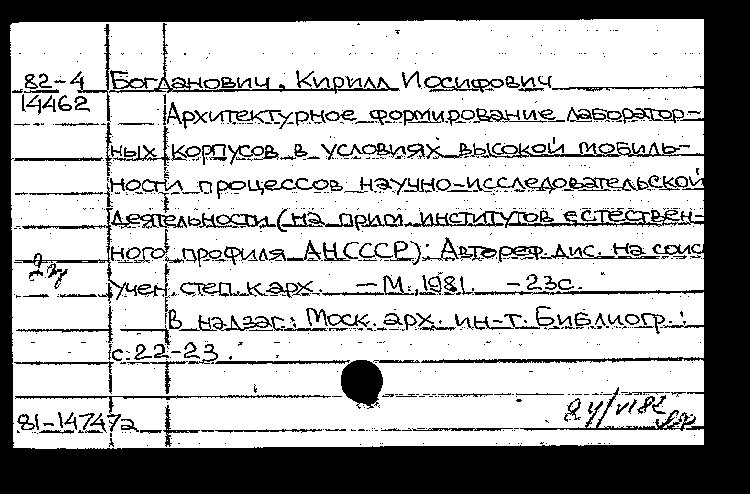 82-4 Богданович, Кирилл Иосифович
14462
Архитектурное формирование лаборатор-
ных корпусов в условиях высокой мобиль-
ности процессов научно-исследовательской
деятельности (на прим. институтов естествен-
ного профиля АН СССР): Автореф. дис. на соиск
учен. степ. к. арх. — М., 1981. — 23с.
В надзаг.: Моск. арх. ин-т. Библиогр.:
с. 22-23.
81-14747а